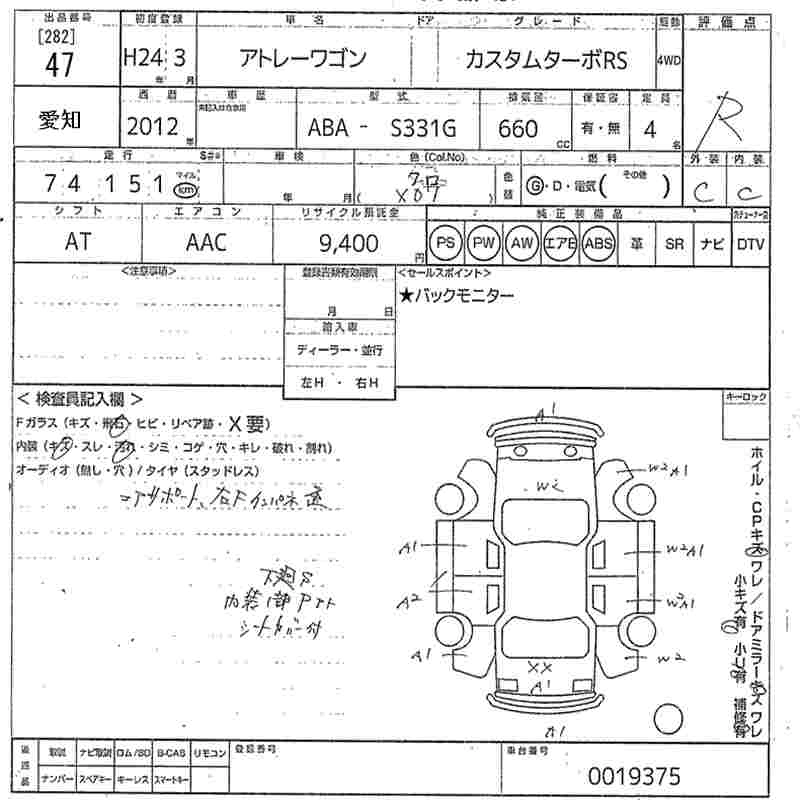 出品番号 初度登録 車名 ドア グレード 駆動 評価点
[282]
47 H24 3 アトレーワゴン カスタムターボRS 4WD R
年 月
西暦 車歴 型式 排気量 保証書 定員
愛知 2012年 ABA - S331G 660 CC 有・無 4名
走行 車検 色 (Col.No) 燃料 外装 内装
74 151 マイル km 年 月 ( クロ X07 ) 色替 G・D・電気 ( その他 ) C C
シフト エアコン リサイクル預託金 純正装備品
AT AAC 9,400円 PS PW AW エアB ABS 革 SR ナビ DTV
<注意事項> 登録書類有効期限 <セールスポイント>
月 日 ★バックモニター
輸入車
ディーラー・並行
左H ・ 右H
< 検査員記入欄 > キーロック
Fガラス (キズ・飛石・ヒビ・リペア跡・X要)
内装 (キズ・スレ・汚れ・シミ・コゲ・穴・キレ・破れ・割れ)
オーディオ (無し・穴) / タイヤ (スタッドレス)
コアサポート、右Fインパネ 交
下廻S
内装1部PアトA
シートカバー付
A1
W2 A1
W2
A1 W2A1
A2 W2A1
A1 W2
XX
A1
A1
ホイル・CPキズワレ/ドアミラーキズワレ
小キズ有 小U有 補修有
後送品 取説 ナビ取説 ロム/SD B-CAS リモコン 登録番号 車台番号
ナンバー スペアキー キーレス スマートキー 0019375